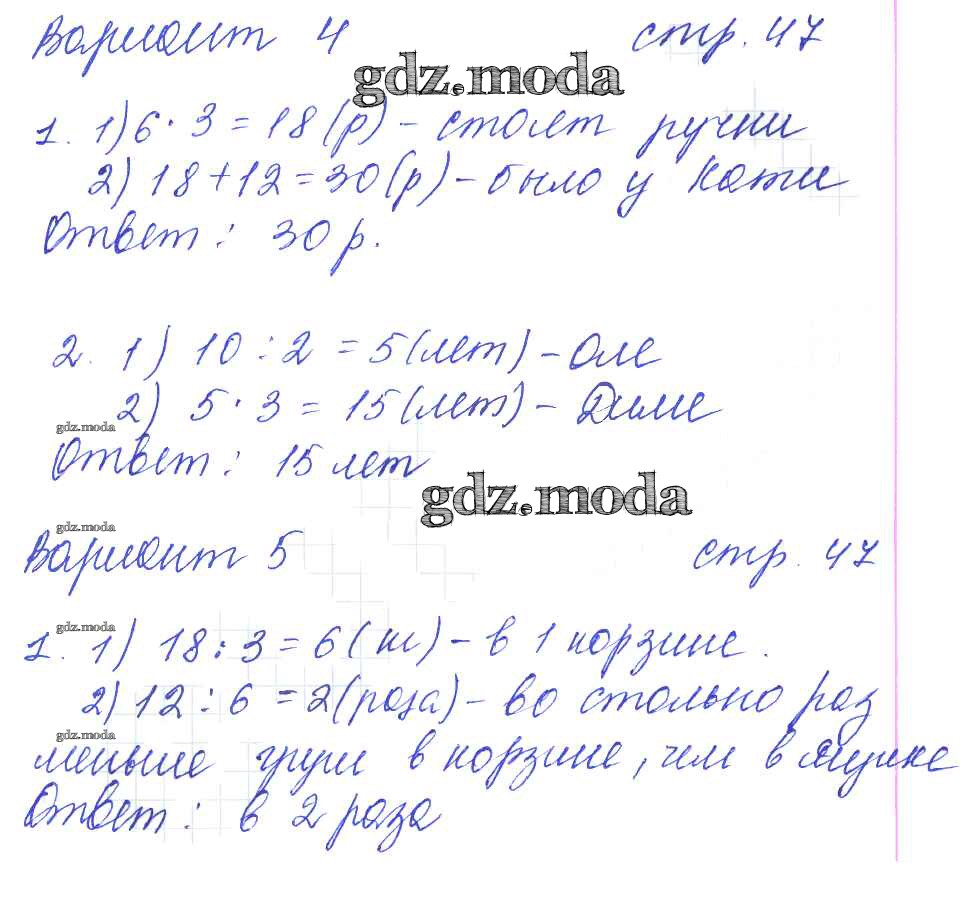 Вариант 4 стр. 47
gdz.moda
1. 1) 6 · 3 = 18 (р) – стоят ручки
2) 18 + 12 = 30 (р) – было у Кати
Ответ: 30 р.
2. 1) 10 : 2 = 5 (лет) – Оле
2) 5 · 3 = 15 (лет) – Диме
gdz.moda
Ответ: 15 лет
gdz.moda
gdz.moda
Вариант 5 стр. 47
gdz.moda
1. 1) 18 : 3 = 6 (кг) – в 1 корзине.
2) 12 : 6 = 2 (раза) – во столько раз
gdz.moda
меньше груш в корзине, чем в ящике
Ответ: в 2 раза